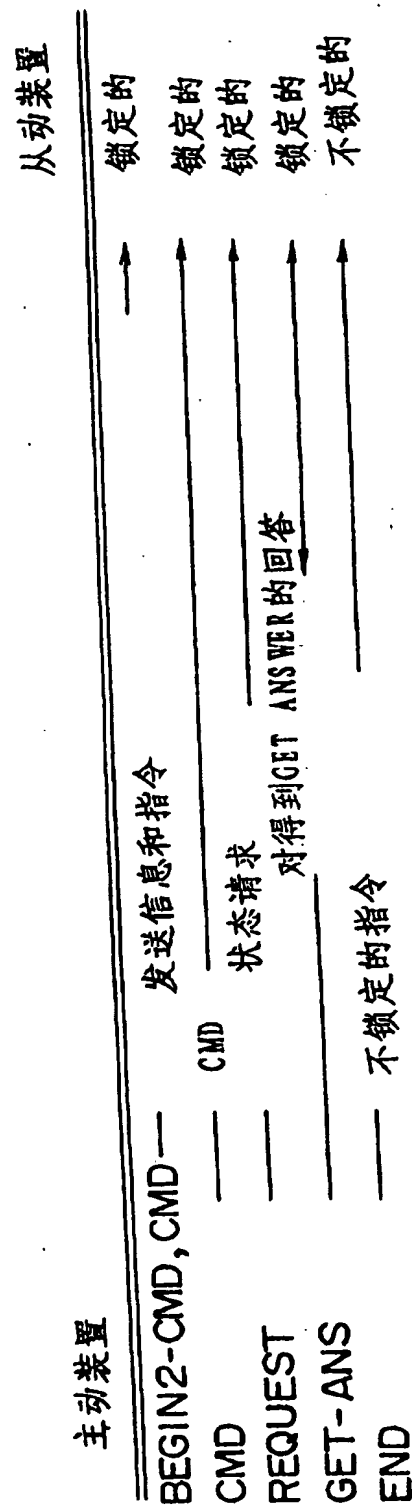 主动装置 从动装置
BEGIN2-CMD,CMD 发送信息和指令 锁定的
CMD CMD 锁定的
REQUEST 状态请求 锁定的
GET-ANS 对得到GET ANSWER的回答 锁定的
END 不锁定的指令 不锁定的